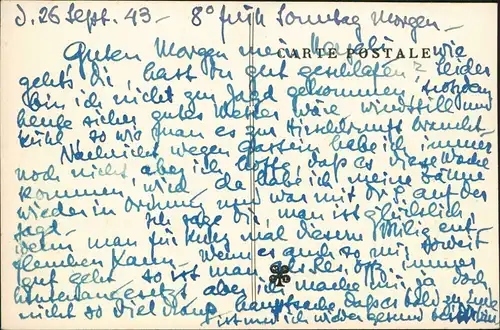 d. 26 Sept. 43 – 8º früh Sonntag Morgen –
CARTE POSTALE
Guten Morgen mein wie
gehts Dir, hast Du gut geschlafen? leider
bin ich nicht zur Jagd gekommen, trotzdem
heute sicher gutes Wetter wäre windstill und
kühl so wie man es zur Hirschbrunft braucht –
Nachricht wegen Gastein habe ich immer
noch nicht, aber ich hoffe, daß es diese Woche
kommen wird, da habe ich meine Zähne
wieder in Ordnung und war mit auf der
Jagd – Ich sage Dir, man ist glücklich,
wenn man für kurz mal diesem ent-
fliehen kann – wenn es auch so mir soweit
gut geht so ist man des Res. Off. immer
aber ich mache mir ja doch
nicht so viel draus, hauptsache daß es bald zu Ende
ist und ich wieder gesund